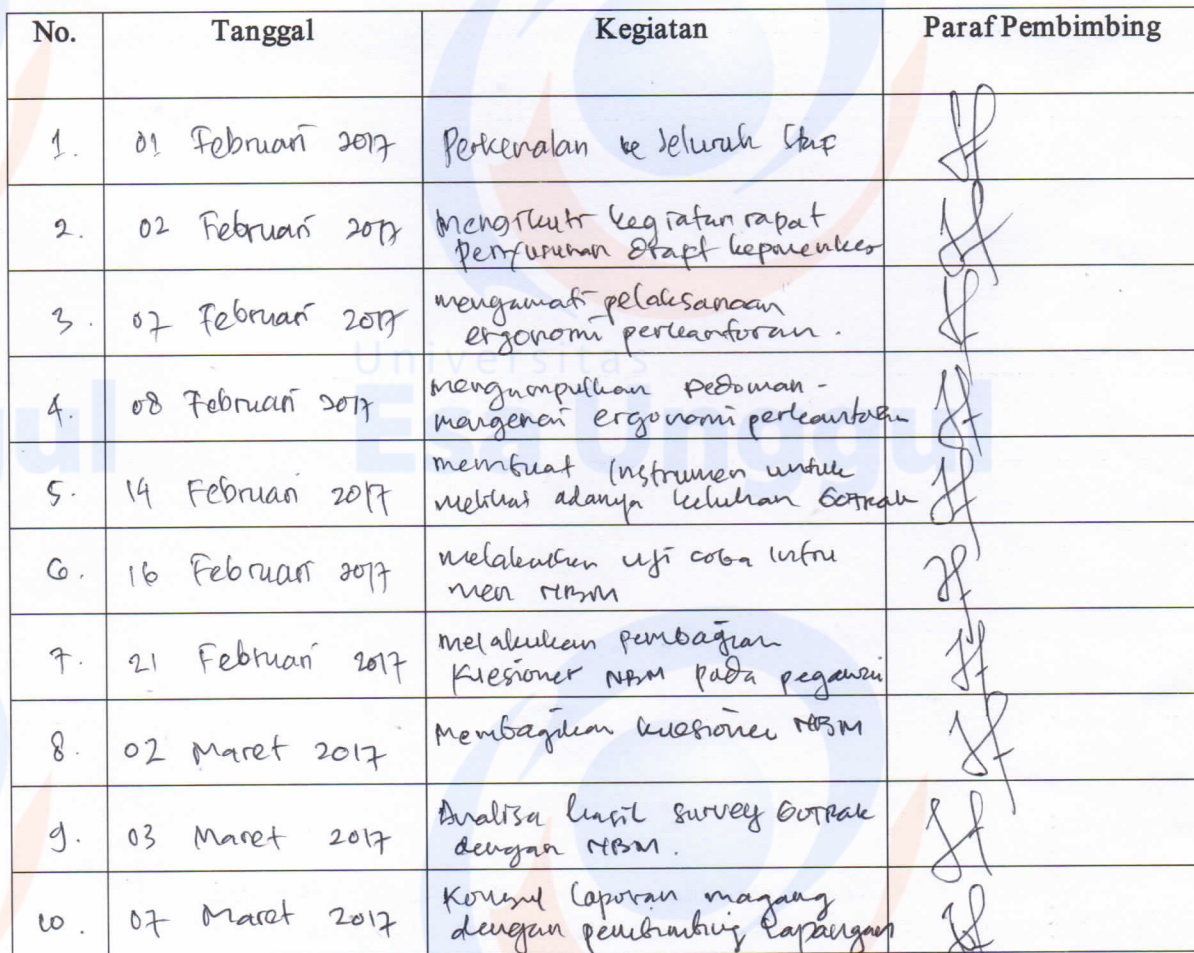 No. Tanggal Kegiatan Paraf Pembimbing
1. 01 Februari 2017 Perkenalan ke seluruh staf
2. 02 Februari 2017 mengikuti kegiatan rapat
penyusunan draft kepmenkes
3. 07 Februari 2017 mengamati pelaksanaan
ergonomi perkantoran.
Universitas
Esa Unggul
4. 08 Februari 2017 mengumpulkan pedoman-
mengenai ergonomi perkantoran
5. 14 Februari 2017 membuat instrumen untuk
melihat adanya keluhan GOTRAK
6. 16 Februari 2017 melakukan uji coba instru
men NBM
7. 21 Februari 2017 melakukan pembagian
kuesioner NBM pada pegawai
8. 02 Maret 2017 Membagikan kuesioner NBM
9. 03 Maret 2017 Analisa hasil survey GOTRAK
dengan NBM.
10. 07 Maret 2017 Konsul laporan magang
dengan pembimbing lapangan